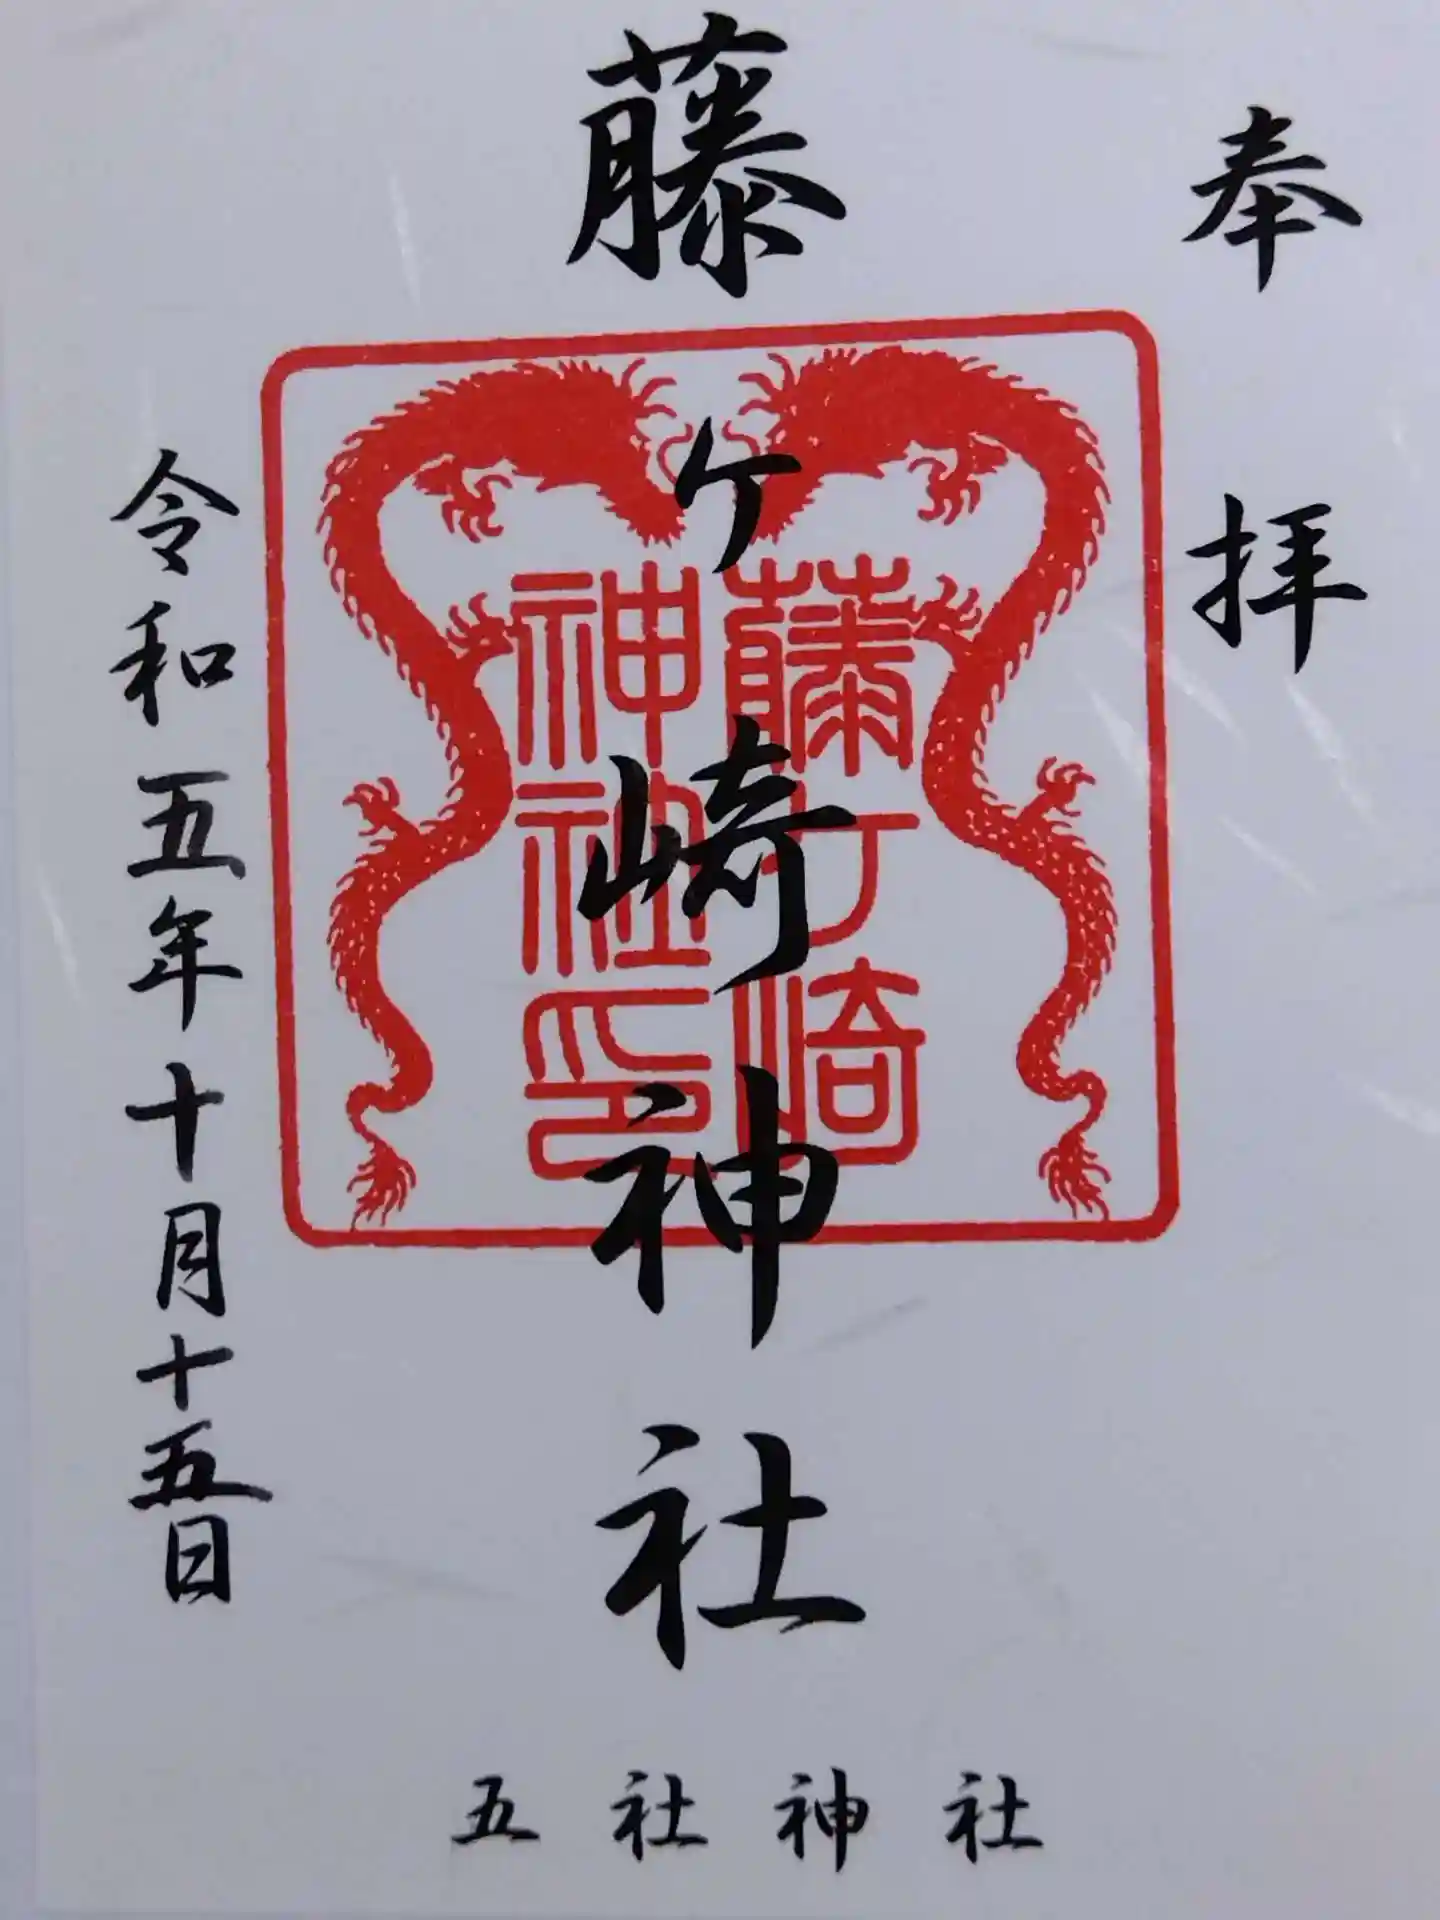 奉拝
藤ケ崎神社
藤ケ崎
神社印
令和五年十月十五日
五社神社